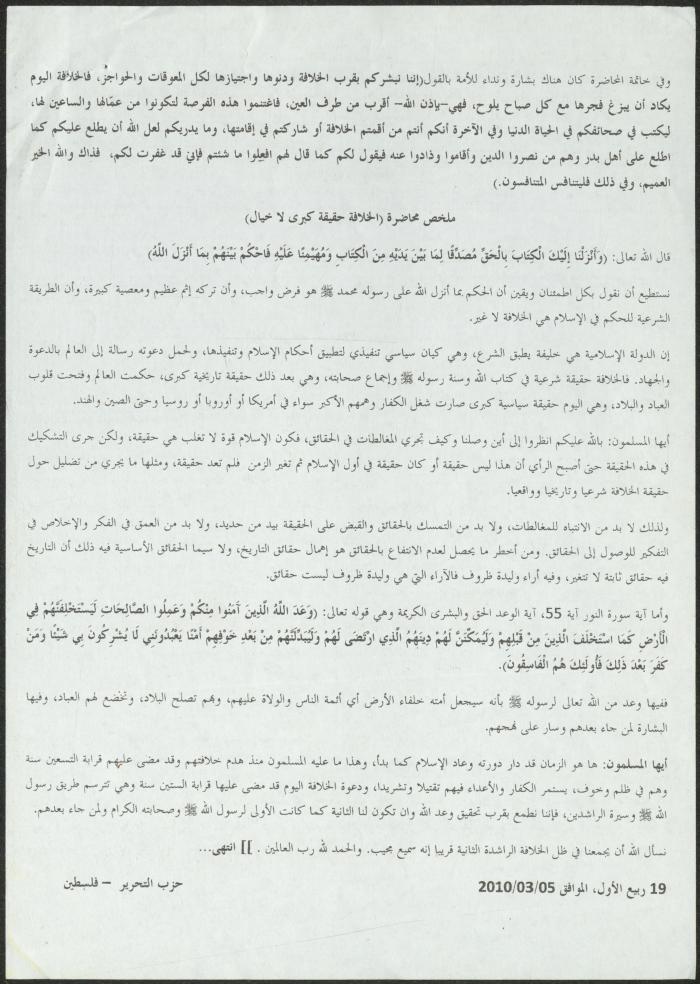 وفي خاتمة المحاضرة كان هناك بشارة ونداء للأمة بالقول(إننا نبشركم بقرب الخلافة ودنوها واجتيازها لكل المعوقات والحواجز، فالخلافة اليوم
يكاد أن يبزغ فجرها مع كل صباح يلوح، فهي–بإذن الله– أقرب من طرف العين، فاغتنموا هذه الفرصة لتكونوا من عمّالها والساعين لها،
ليكتب في صحائفكم في الحياة الدنيا وفي الآخرة أنكم أنتم من أقمتم الخلافة أو شاركتم في إقامتها، وما يدريكم لعل الله أن يطلع عليكم كما
اطلع على أهل بدر وهم من نصروا الدين وأقاموا وذادوا عنه فيقول لكم كما قال لهم افعلوا ما شئتم فإني قد غفرت لكم، فذاك والله الخير
العميم، وفي ذلك فليتنافس المتنافسون.)
ملخص محاضرة (الخلافة حقيقة كبرى لا خيال)
قال الله تعالى: (وَأَنْزَلْنَا إِلَيْكَ الْكِتَابَ بِالْحَقِّ مُصَدِّقًا لِمَا بَيْنَ يَدَيْهِ مِنَ الْكِتَابِ وَمُهَيْمِنًا عَلَيْهِ فَاحْكُمْ بَيْنَهُمْ بِمَا أَنْزَلَ اللَّهُ)
نستطيع أن نقول بكل اطمئنان ويقين أن الحكم بما أنزل الله على رسوله محمد ﷺ هو فرض واجب، وأن تركه إثم عظيم ومعصية كبيرة، وأن الطريقة
الشرعية للحكم في الإسلام هي الخلافة لا غير.
إن الدولة الإسلامية هي خليفة يطبق الشرع، وهي كيان سياسي تنفيذي لتطبيق أحكام الإسلام وتنفيذها، ولحمل دعوته رسالة إلى العالم بالدعوة
والجهاد. فالخلافة حقيقة شرعية في كتاب الله وسنة رسوله ﷺ وإجماع صحابته، وهي بعد ذلك حقيقة تاريخية كبرى، حكمت العالم وفتحت قلوب
العباد والبلاد، وهي اليوم حقيقة سياسية كبرى صارت شغل الكفار وهمهم الأكبر سواء في أمريكا أو أوروبا أو روسيا وحتى الصين والهند.
أيها المسلمون: بالله عليكم انظروا إلى أين وصلنا وكيف تجري المغالطات في الحقائق، فكون الإسلام قوة لا تغلب هي حقيقة، ولكن جرى التشكيك
في هذه الحقيقة حتى أصبح الرأي أن هذا ليس حقيقة أو كان حقيقة في أول الإسلام ثم تغير الزمن فلم تعد حقيقة، ومثلها ما يجري من تضليل حول
حقيقة الخلافة شرعيا وتاريخيا وواقعيا.
ولذلك لا بد من الانتباه للمغالطات، ولا بد من التمسك بالحقائق والقبض على الحقيقة بيد من حديد، ولا بد من العمق في الفكر والإخلاص في
التفكير للوصول إلى الحقائق. ومن أخطر ما يحصل لعدم الانتفاع بالحقائق هو إهمال حقائق التاريخ، ولا سيما الحقائق الأساسية فيه ذلك أن التاريخ
فيه حقائق ثابتة لا تتغير، وفيه أراء وليدة ظروف فالآراء التي هي وليدة ظروف ليست حقائق.
وأما آية سورة النور آية 55، آية الوعد الحق والبشرى الكريمة وهي قوله تعالى: (وَعَدَ اللَّهُ الَّذِينَ آَمَنُوا مِنْكُمْ وَعَمِلُوا الصَّالِحَاتِ لَيَسْتَخْلِفَنَّهُمْ فِي
الْأَرْضِ كَمَا اسْتَخْلَفَ الَّذِينَ مِنْ قَبْلِهِمْ وَلَيُمَكِّنَنَّ لَهُمْ دِينَهُمُ الَّذِي ارْتَضَى لَهُمْ وَلَيُبَدِّلَنَّهُمْ مِنْ بَعْدِ خَوْفِهِمْ أَمْنًا يَعْبُدُونَنِي لَا يُشْرِكُونَ بِي شَيْئًا وَمَنْ
كَفَرَ بَعْدَ ذَلِكَ فَأُولَئِكَ هُمُ الْفَاسِقُونَ).
ففيها وعد من الله تعالى لرسوله ﷺ بأنه سيجعل أمته خلفاء الأرض أي أئمة الناس والولاة عليهم، وبهم تصلح البلاد، وتخضع لهم العباد، وفيها
البشارة لمن جاء بعدهم وسار على نهجهم.
أيها المسلمون: ها هو الزمان قد دار دورته وعاد الإسلام كما بدأ، وهذا ما عليه المسلمون منذ هدم خلافتهم وقد مضى عليهم قرابة التسعين سنة
وهم في ظلم وخوف، يستمر الكفار والأعداء فيهم تقتيلا وتشريدا، ودعوة الخلافة اليوم قد مضى عليها قرابة الستين سنة وهي تترسم طريق رسول
الله ﷺ وسيرة الراشدين، فإننا نطمع بقرب تحقيق وعد الله وان تكون لنا الثانية كما كانت الأولى لرسول الله ﷺ وصحابته الكرام ولمن جاء بعدهم.
نسأل الله أن يجمعنا في ظل الخلافة الراشدة الثانية قريبا إنه سميع مجيب. والحمد لله رب العالمين . ]] انتهى...
19 ربيع الأول، الموافق 2010/03/05 حزب التحرير – فلسطين